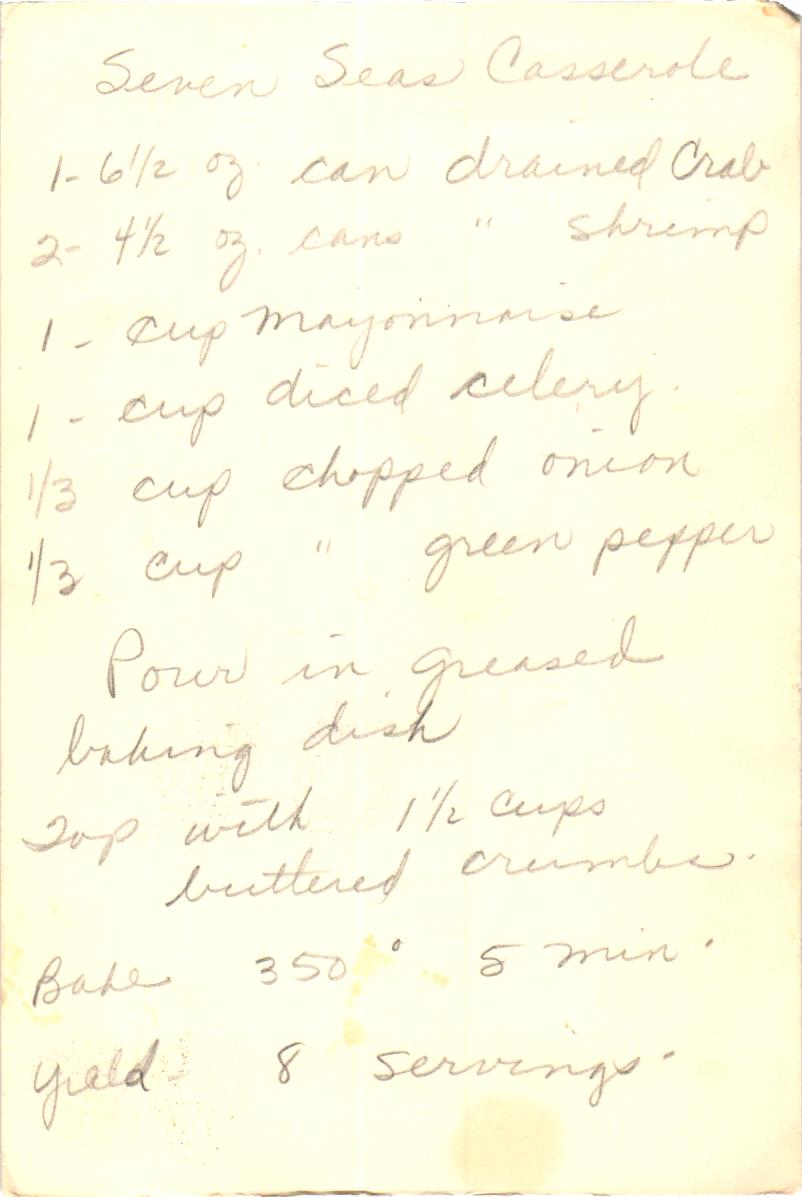 Seven Seas Casserole
1- 6 1/2 oz. can drained Crab
2- 4 1/2 oz. cans " Shrimp
1 - cup Mayonnaise
1 - cup diced celery.
1/3 cup chopped onion
1/3 cup " green pepper
Pour in greased
baking dish
Top with 1 1/2 cups
buttered crumbs.
Bake 350° 5 min.
Yield - 8 servings.